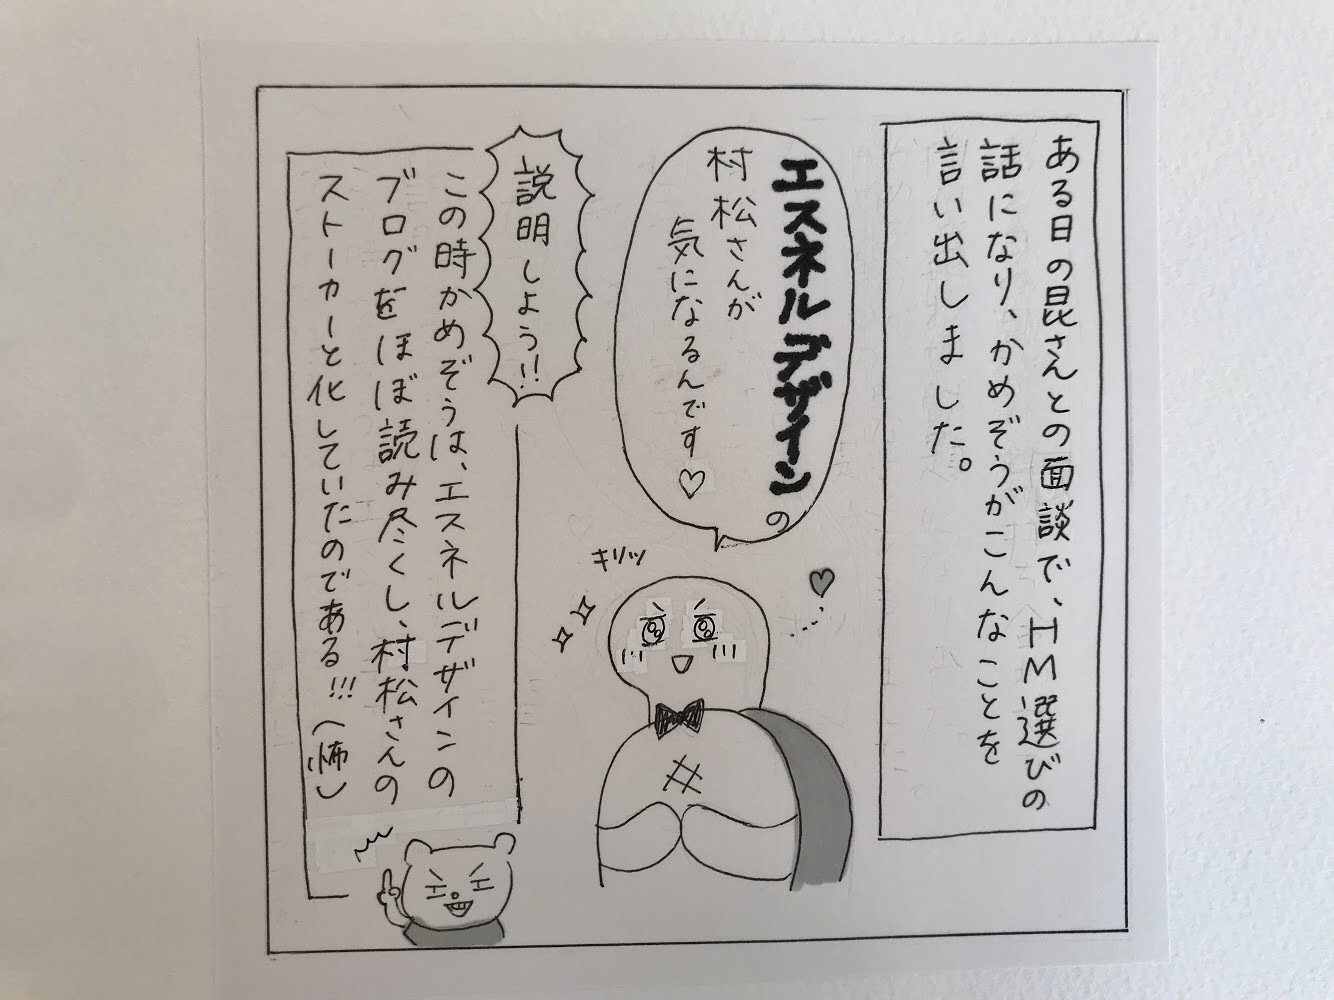 ある日の昆さんとの面談で、HM選びの
話になり、かめぞうがこんなことを
言い出しました。
エスネルデザインの
村松さんが
気になるんです♡
キリッ
説明しよう!!
この時かめぞうは、エスネルデザインの
ブログをほぼ読み尽くし、村松さんの
ストーカーと化していたのである!!!(怖)